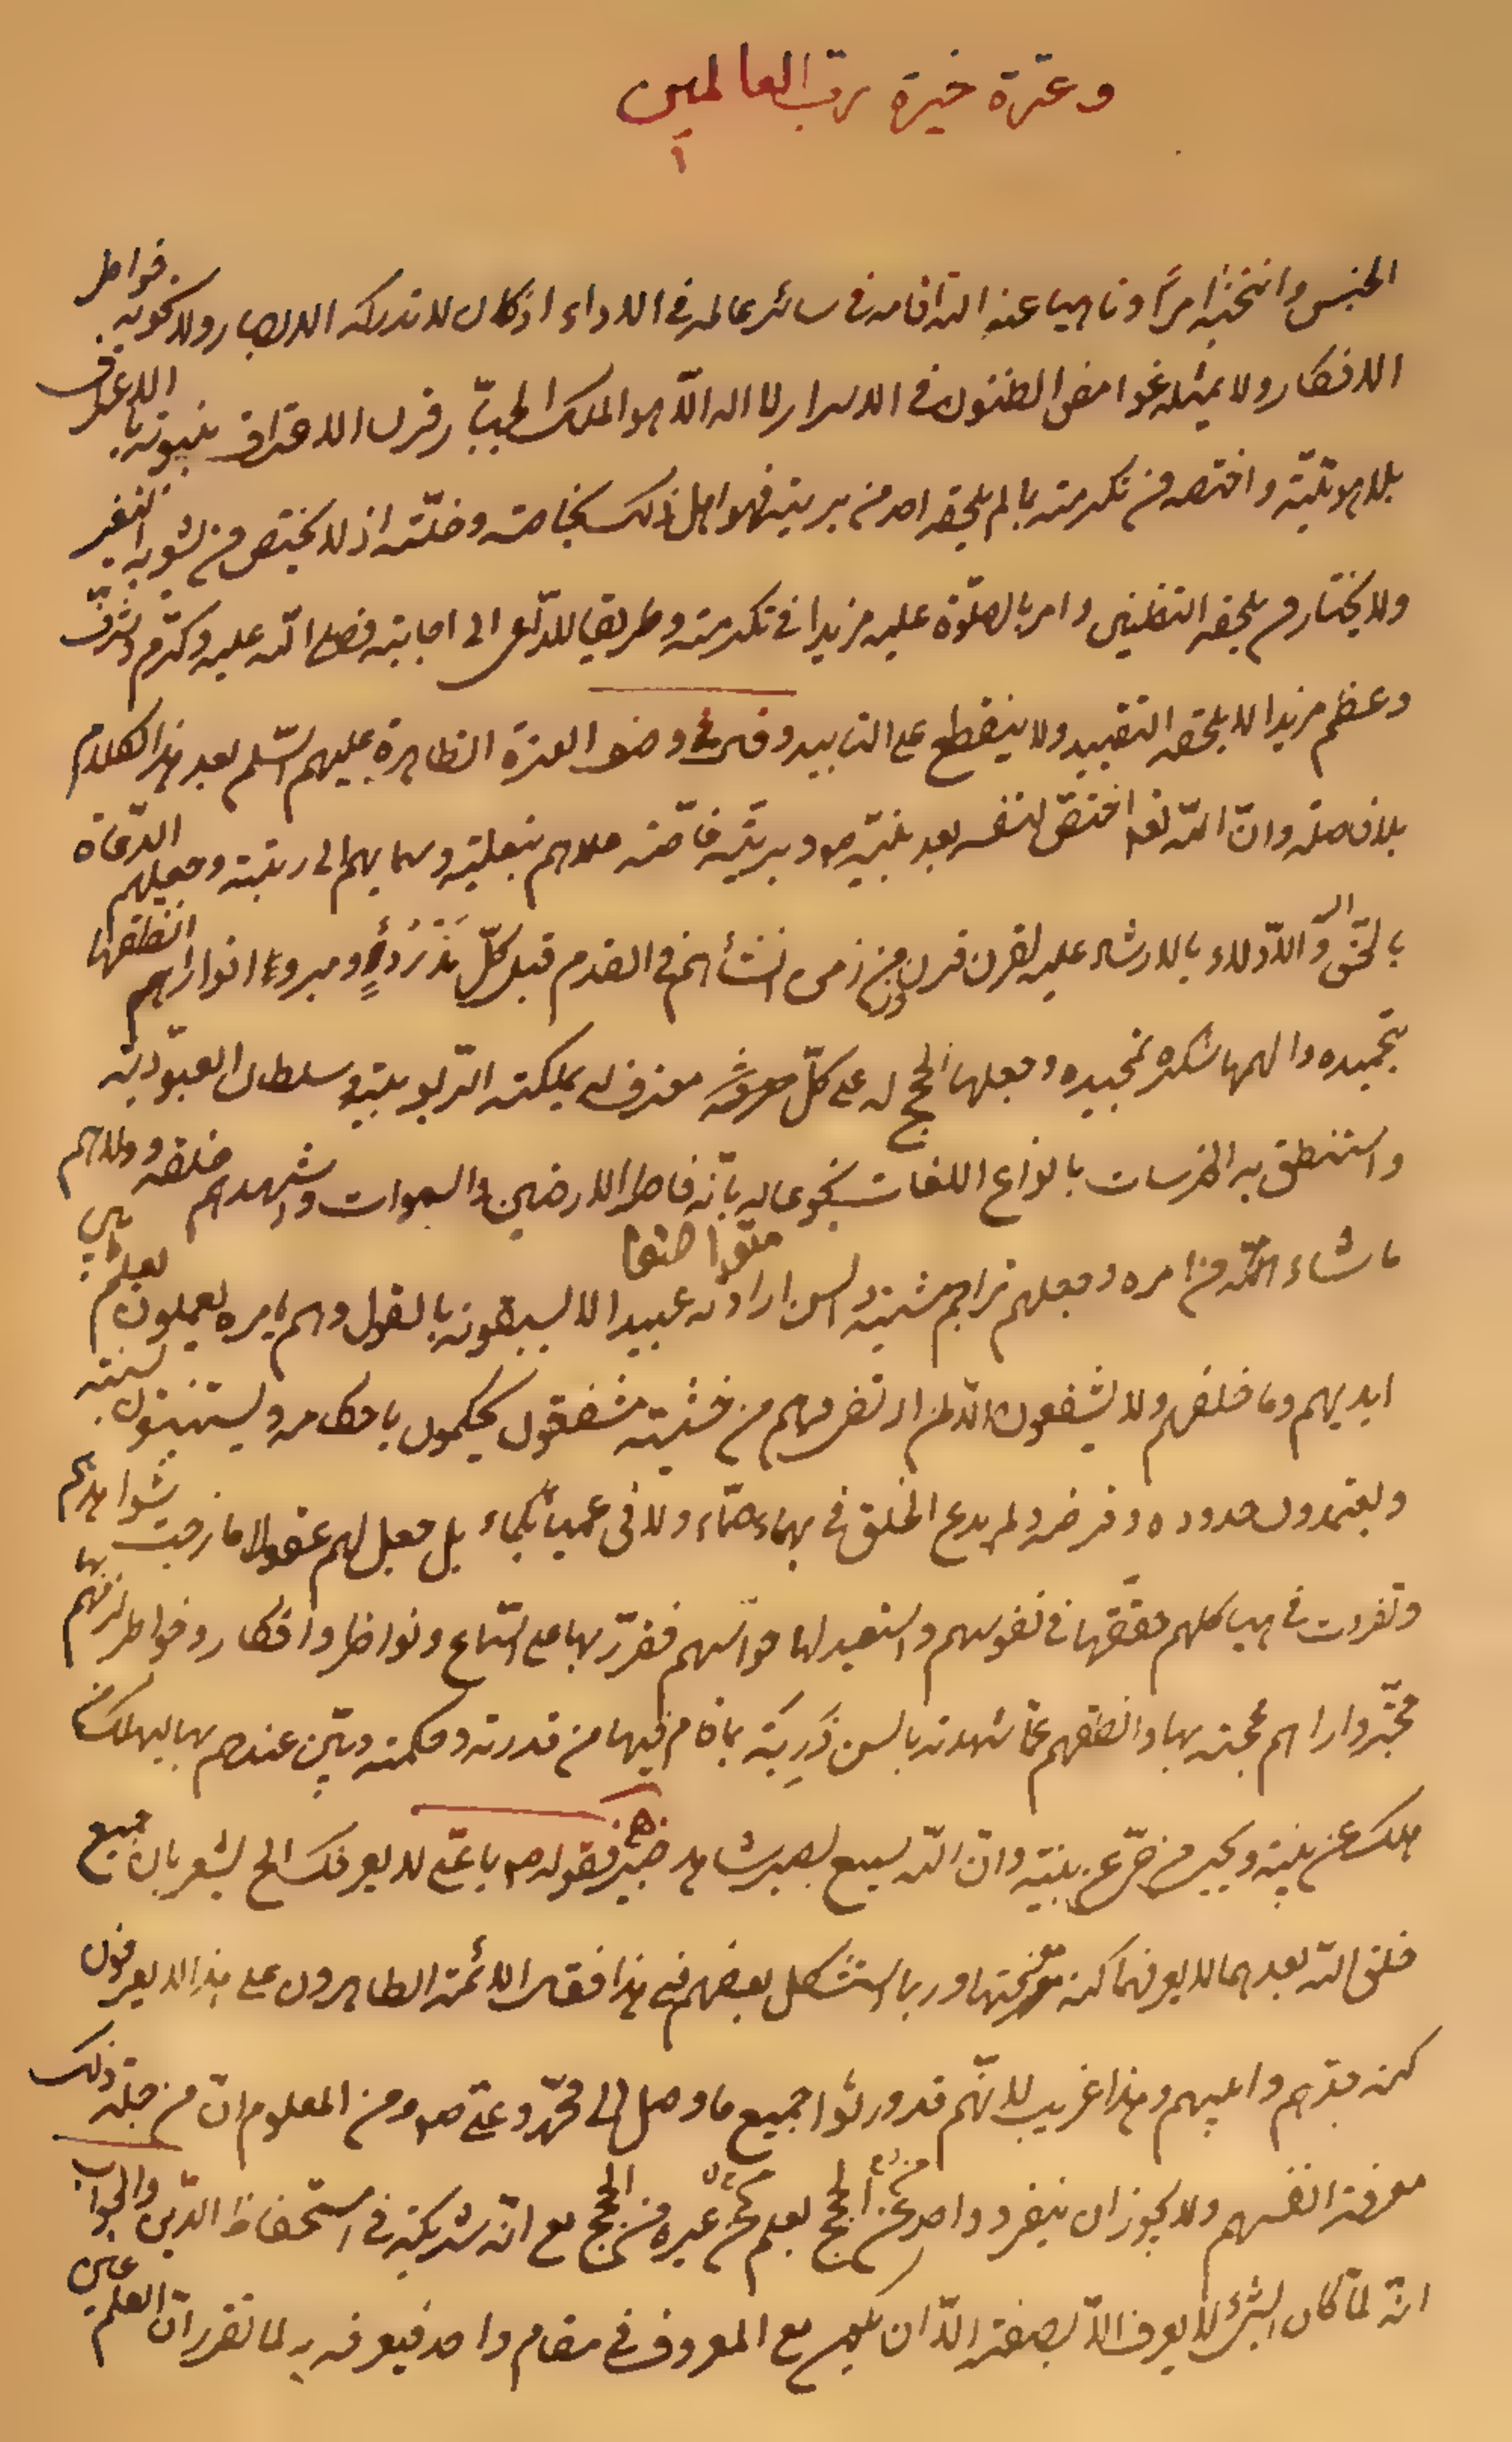 وعترة خيرة رب العالمين
الجنس وانتخبه امرًا وناهيا عنه اقامه في سائر عالمه في الاداء اذ كان لا تدركه الابصار ولا تحويه خواطر
الافكار ولا تمثله غوامض الظنون في الاسرار لا اله الّا هو الملك الجبّار قرن الاعتراف بنبوته بالاعتراف
بلاهوتيّته واختصه من تكرمته بما لم يلحقه احد من بريته فهو اهل ذلك بخاصته وخلّته اذ لا يختص من يشوبه التغيير
ولا يختار من يلحقه التظنين وامر بالصلوة عليه مزيدا في تكرمته وطريقا للداعي الى اجابته فصلى الله عليه وكرّم وشرّف
وعظم مزيدا لا يلحقه التفنيد ولا ينقطع على التابيد وقال في وصف العترة الطاهرة عليهم السّلم بعد هذا الكلام
بلا فاصلة وانّ الله تعالى اختصّ لنفسه بعد نبيّه ص من بريّته خاصّة علاهم بتعليته وسما بهم الى رتبته وجعلهم الدّعاة
بالحق اليه والادلاء بالارشاد عليه لقرن قرن وزمن زمن انشأهم في القدم قبل كلّ مذروء ومبروء انوارا انطقها
بتحميده والهمها شكره وتمجيده وجعلها الحجج له على كلّ معترف له بملكته الرّبوبيّة وسلطان العبوديّة
واستنطق به الخرسات بانواع اللغات بخوعا له بانّه فاطر الارضين والسموات واشهدهم خلقه وولاهم
ما شاء الله من امره وجعلهم تراجم مشيته والسن ارادته عبيدا لا يسبقونه بالقول وهم بامره يعملون يعلم ما بين
ايديهم وما خلفهم ولا يشفعون الّا لمن ارتضى وهم من خشيته مشفقون يحكمون باحكامه ويستنّون بسنته
ويعتمدون حدوده وفرضه ولم يدع الخلق في بهماء صمّاء ولا في عمياء بكماء بل جعل لهم عقولا مازجت شواهدهم
وتفرقت في هياكلهم حقّقها في نفوسهم واستعبد لها حواسهم فقرّر بها على اسماع ونواظر وافكار وخواطر الزمهم بها
حجّته واراهم محجته بها وانطقهم عمّا شهدته بالسن ذربة بما قام فيها من قدرته وحكمته وبيّن عندهم بها ليهلك من
هلك عن بيّنة ويحيى من حيّ عن بيّنة وانّ الله لسميع بصير شاهد خبير فقوله ص يا عليّ لا يعرفك الخ يشعر بان جميع
خلق الله بعدهما لا يعرفهما كنه معرفتهما وربما استشكل بعضهم في هذا فقال الائمة الطاهرون على هذا لا يعرفون
كنه جدّهم وابيهم وهذا غريب لانّهم قد ورثوا جميع ما وصل الى محمّد وعليّ ص ومن المعلوم انّ من جملة ذلك
معرفة انفسهم ولا يجوز ان ينفرد واحد من الحجج بعلم عن غيره من الحجج مع انّه شريكه في استحفاظ الدّين والجواب
انّه لمّا كان الشئ لا يعرف الّا بصفته الّا ان يكون مع المعروف في مقام واحد فيعرفه به لما تقرر انّ العلم عين